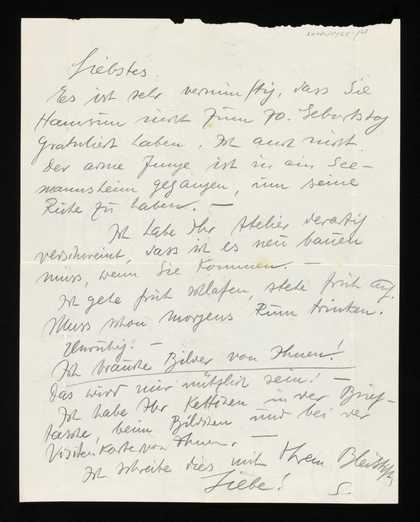 Liebstes.
Es ist sehr vernünftig, dass Sie
Hamsun nicht zum 70. Geburtstag
gratuliert haben. Ich auch nicht.
Der arme Junge ist in ein See-
mannsheim gegangen, um seine
Ruhe zu haben. —
Ich habe Ihr Atelier derartig
verschweint, dass ich es neu bauen
muss, wenn Sie kommen. —
Ich gehe früh schlafen, stehe früh auf.
Muss schon morgens Rum trinken.
Unruhig! —
Ich brauche Bilder von Ihnen!
Das wird mir nützlich sein! —
Ich habe Ihr Kettchen in der Brief-
tasche, beim Bildchen und bei der
Visitenkarte von Ihnen. —
Ich schreibe dies mit Ihrem Bleistift.
Liebe! S.